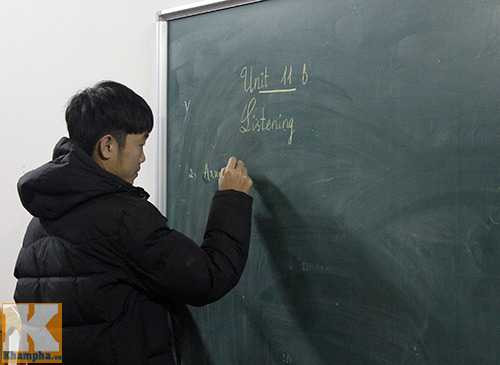 Unit 11 B
Listening
2,
K
Khampha.vn